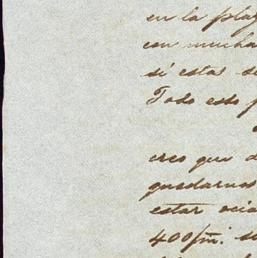 en la plaz
con mucha
si estas se
Todo esto p
creo que d
quedarnos
estar ocio
400 fm.